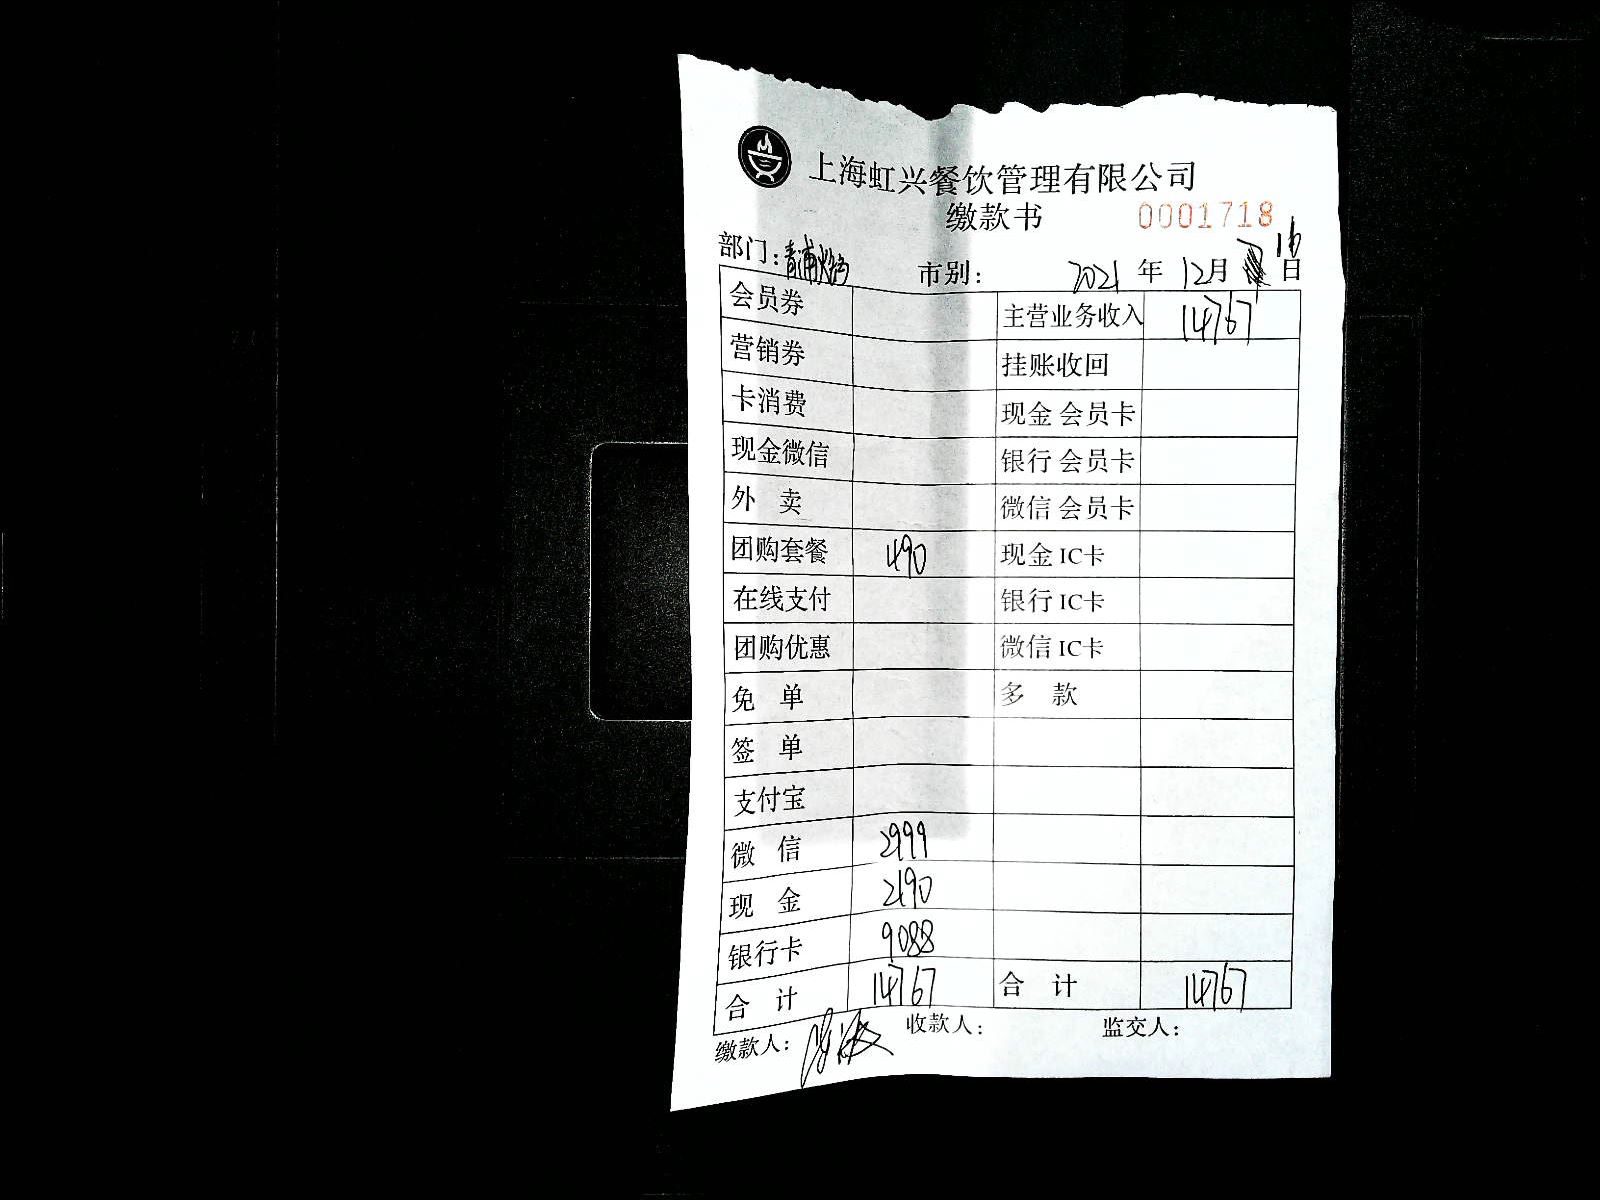 上海虹兴餐饮管理有限公司
缴款书 0001718
部门：青浦 市别： 2021 年 12月 16 日
会员券 主营业务收入 14767
营销券 挂账收回
卡消费 现金 会员卡
现金微信 银行 会员卡
外 卖 微信 会员卡
团购套餐 490 现金 IC卡
在线支付 银行 IC卡
团购优惠 微信 IC卡
免 单 多 款
签 单
支付宝
微 信 2999
现 金 2190
银行卡 9088
合 计 14767 合 计 14767
缴款人： 收款人： 监交人：